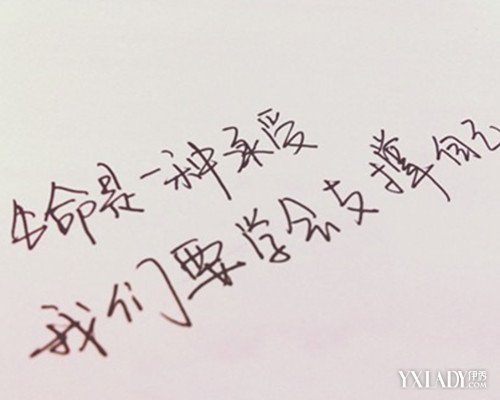 生命是一种承受
我们要学会支撑自己
YXLADY.伊秀.COM